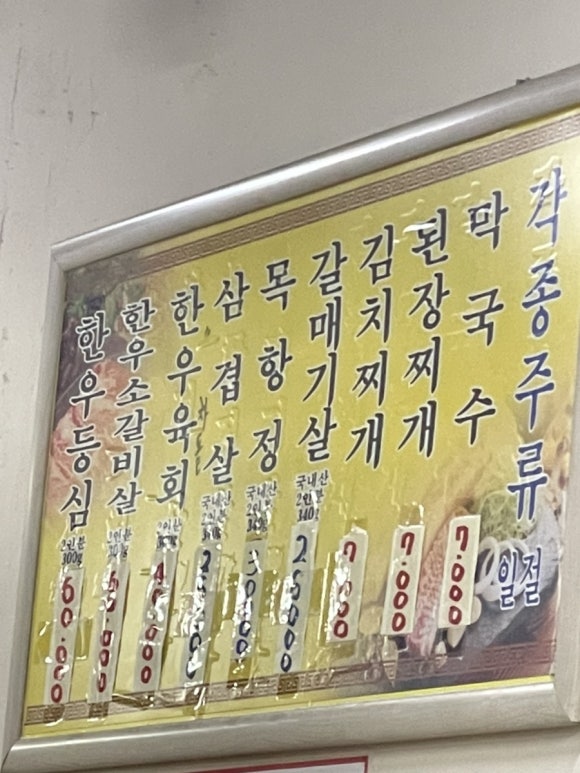 한우등심
2인분
300g
60.000
한우소갈비살
2인분
한우육회
2인분
40.000
삼겹살
국내산
2인분
목항정
국내산
2인분
340g
30000
갈매기살
국내산
2인분
340g
김치찌개
7.000
된장찌개
7.000
막국수
7.000
각종주류일절